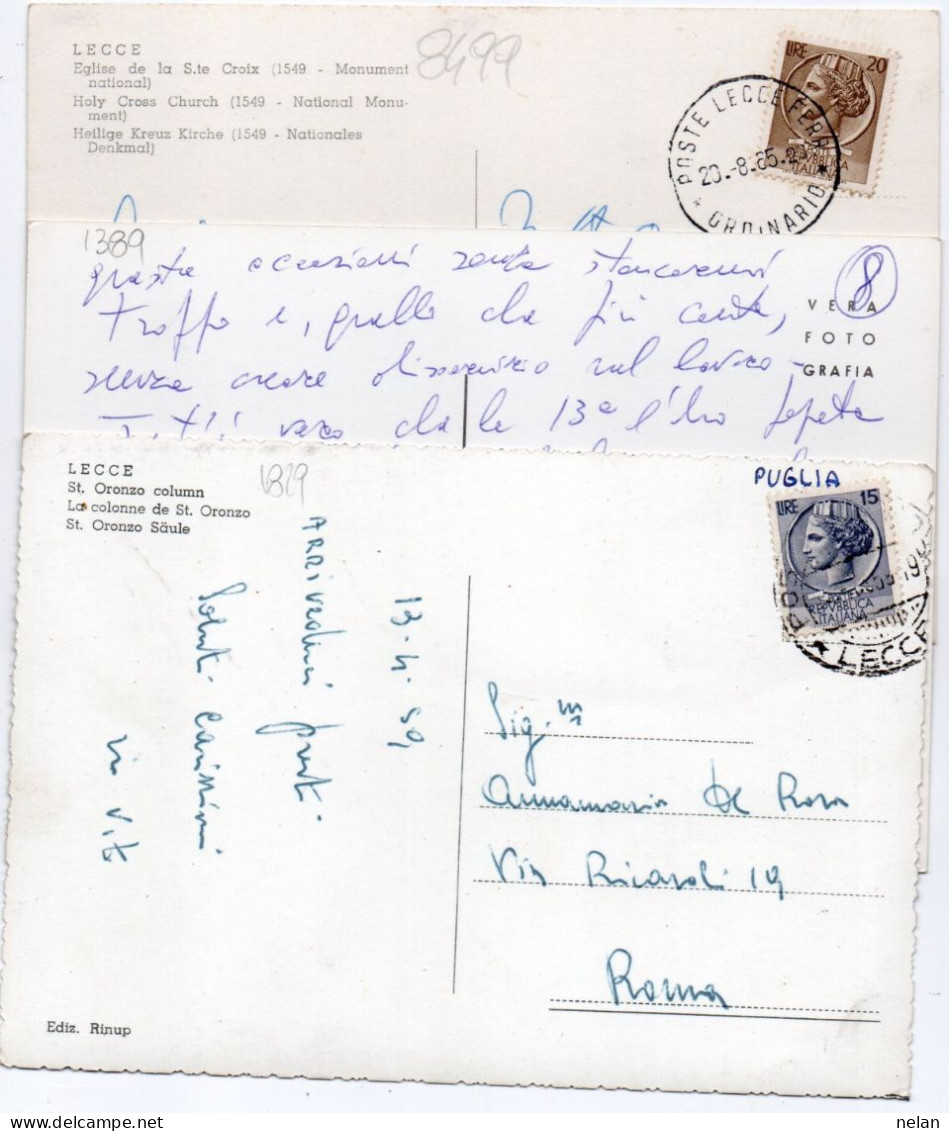 LECCE
Eglise de la S.te Croix (1549 - Monument
national)
Holy Cross Church (1549 - National Monu-
ment)
Heilige Kreuz Kirche (1549 - Nationales
Denkmal)
8499
LIRE 20
REPVBBLICA
ITALIANA
POSTE LECCE FERR
20.-8.65.-2
ORDINARIO
1389
8
queste occasioni senza stancarmi
troppo e, quello che più conta,
senza creare disservizio sul lavoro -
che la 13ª
VERA
FOTO
GRAFIA
LECCE
St. Oronzo column
La colonne de St. Oronzo
St. Oronzo Säule
1829
PUGLIA
LIRE 15
REPVBBLICA
ITALIANA
LECCE
13-4-59
Arrivederci presto.
Saluti Carissimi
zio Vito
Sig.na
Annamaria De Rosa
Via Ricasoli 19
Roma
Ediz. Rinup
delcampe.net
nelan